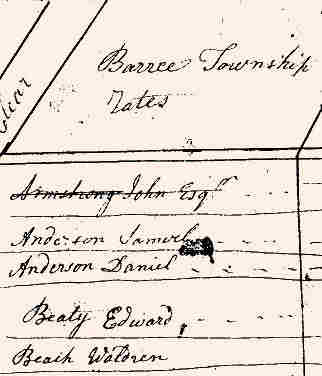 Barree Township
Rates
Armstrong John Esqr
Anderson Samuel
Anderson Daniel
Beaty Edward
Beach Waldren